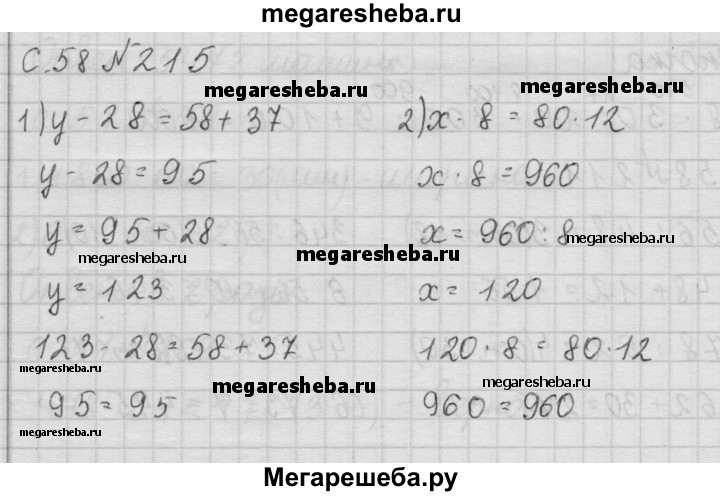 megaresheba.ru
С.58 №215
megaresheba.ru
megaresheba.ru
1) y - 28 = 58 + 37
2) x · 8 = 80 · 12
y - 28 = 95
x · 8 = 960
y = 95 + 28
x = 960 : 8
megaresheba.ru
megaresheba.ru
y = 123
x = 120
123 - 28 = 58 + 37
120 · 8 = 80 · 12
megaresheba.ru
megaresheba.ru
megaresheba.ru
95 = 95
960 = 960
megaresheba.ru
Мегарешеба.ру